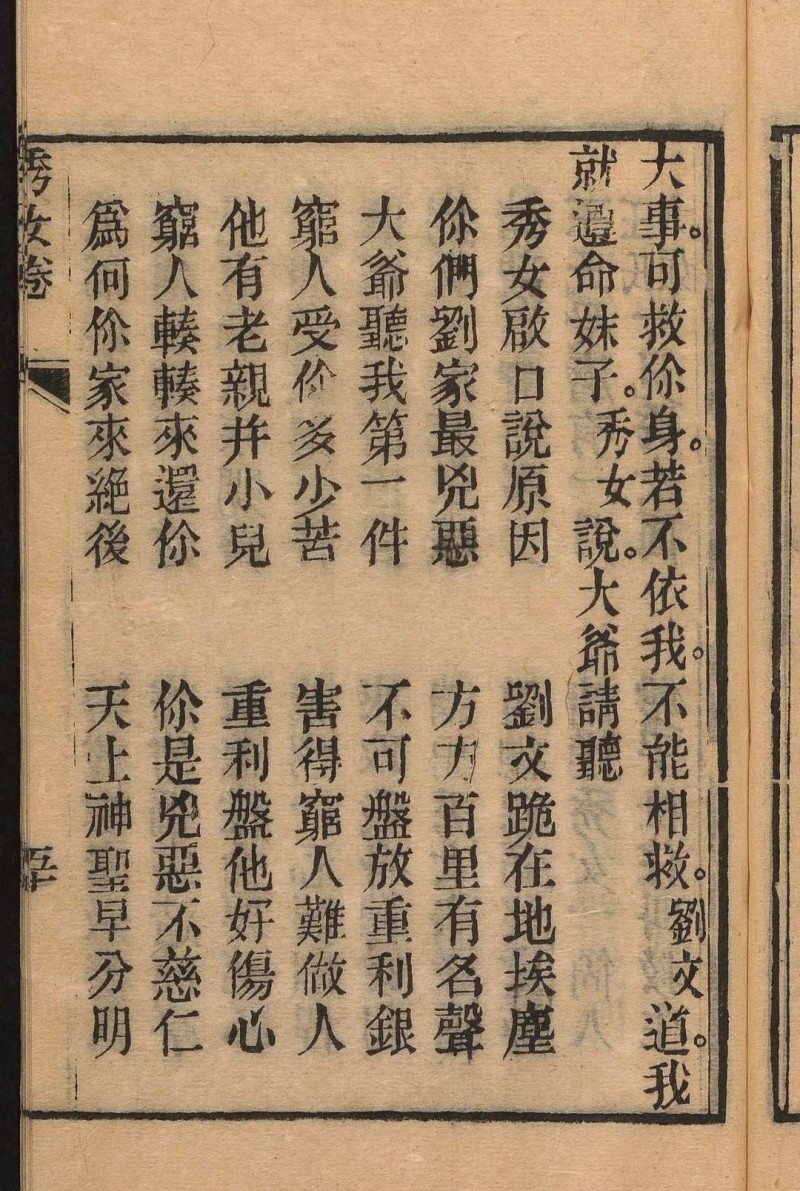 大事。可救你身。若不依我。不能相救。劉文道。我
就遵命妹子。秀女說。大爺請聽
秀女啟口說原因　劉文跪在地埃塵
你們劉家最兇惡　方方百里有名聲
大爺聽我第一件　不可盤放重利銀
窮人受你多少苦　害得窮人難做人
他有老親幷小兒　重利盤他好傷心
窮人輳輳來還你　你是兇惡不慈仁
為何你家來絕後　天上神聖早分明
秀女卷
五十